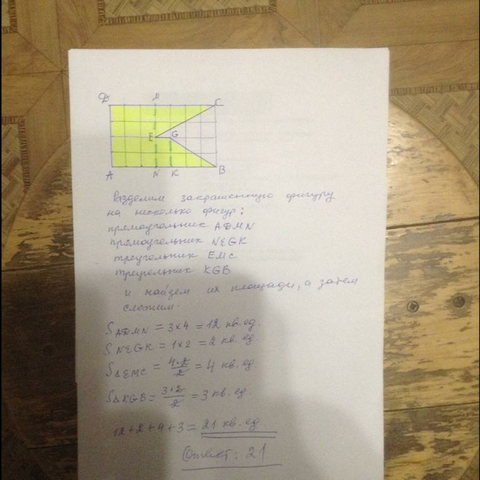 D M C
E G
A N K B
разделим закрашенную фигуру
на несколько фигур:
прямоугольник ADMN
прямоугольник NEGK
треугольник EMC
треугольник KGB
и найдем их площади, а затем
сложим
S ADMN = 3×4 = 12 кв. ед.
S NEGK = 1×2 = 2 кв. ед
S△EMC = 4·2/2 = 4 кв. ед
S△KGB = 3·2/2 = 3 кв. ед
12+2+4+3 = 21 кв. ед
Ответ: 21